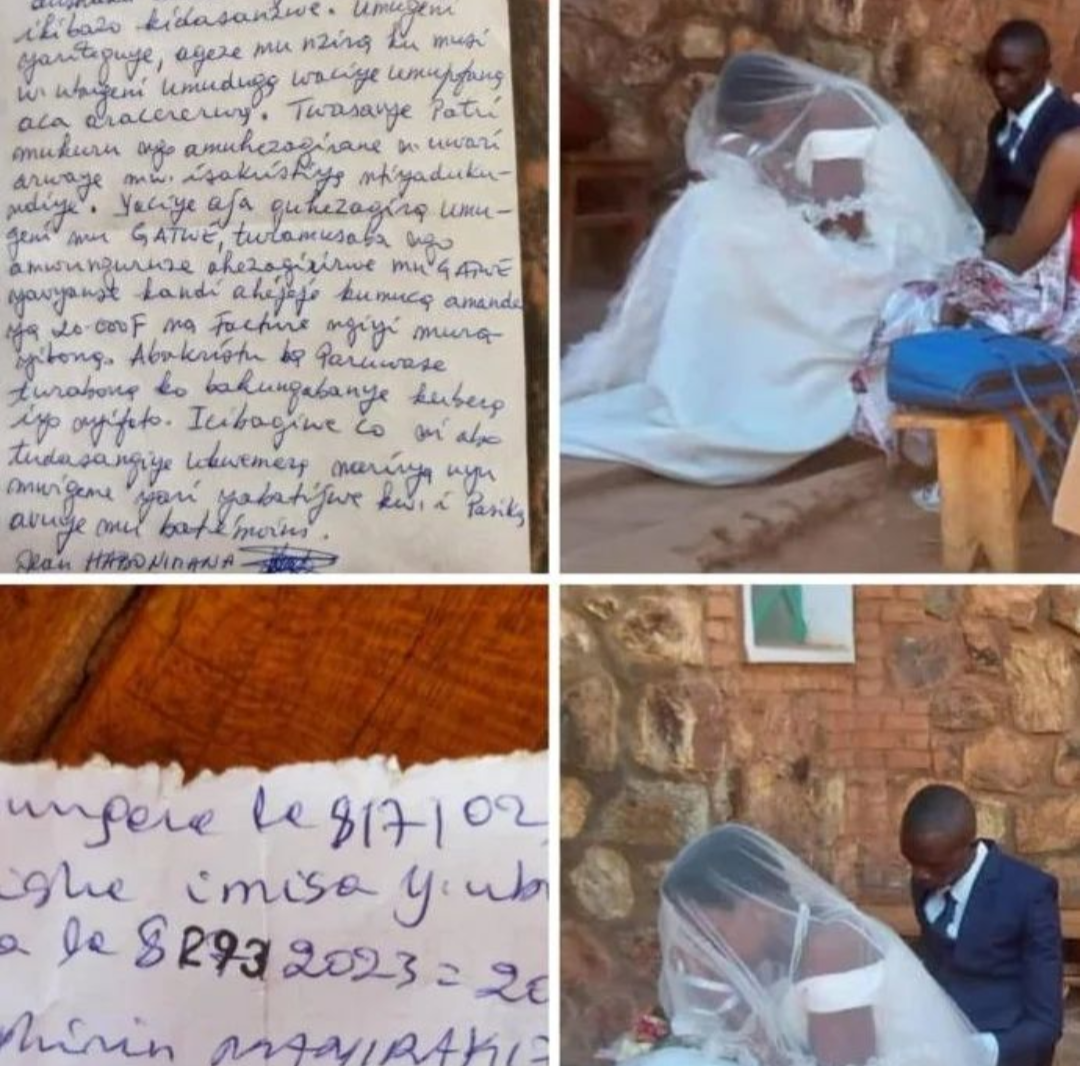 ikibazo kidasanzwe. Umugeni
yariteguye, ageze mu nzira ku musi
w'ubugeni umuduga waciye umupfana
aca aracererwa. Twasavye Patri
mukuru ngo amuhezagirane n'uwari
arwaye mw'isakristiya ntiyadukun-
diye. Yaciye aja guhezagira umu-
geni mu GATWE, turamusaba ngo
ahezagirirwe mu GATWE
yavyanse kandi ahejeje kumuca amande
ya 20.000F na facture ngiyi mura-
yibona. Abakristu ba Paruwase
turabona ko
iyo ngifoto. Icibagiwe co ni uko
tudasangiye ukwemera
umwigeme yari yabatijwe kw'i Pasika
avuye mu batémoins.
Jean HABONIMANA
le 8/7/02
imisa y'ub
le 8 2023 = 20